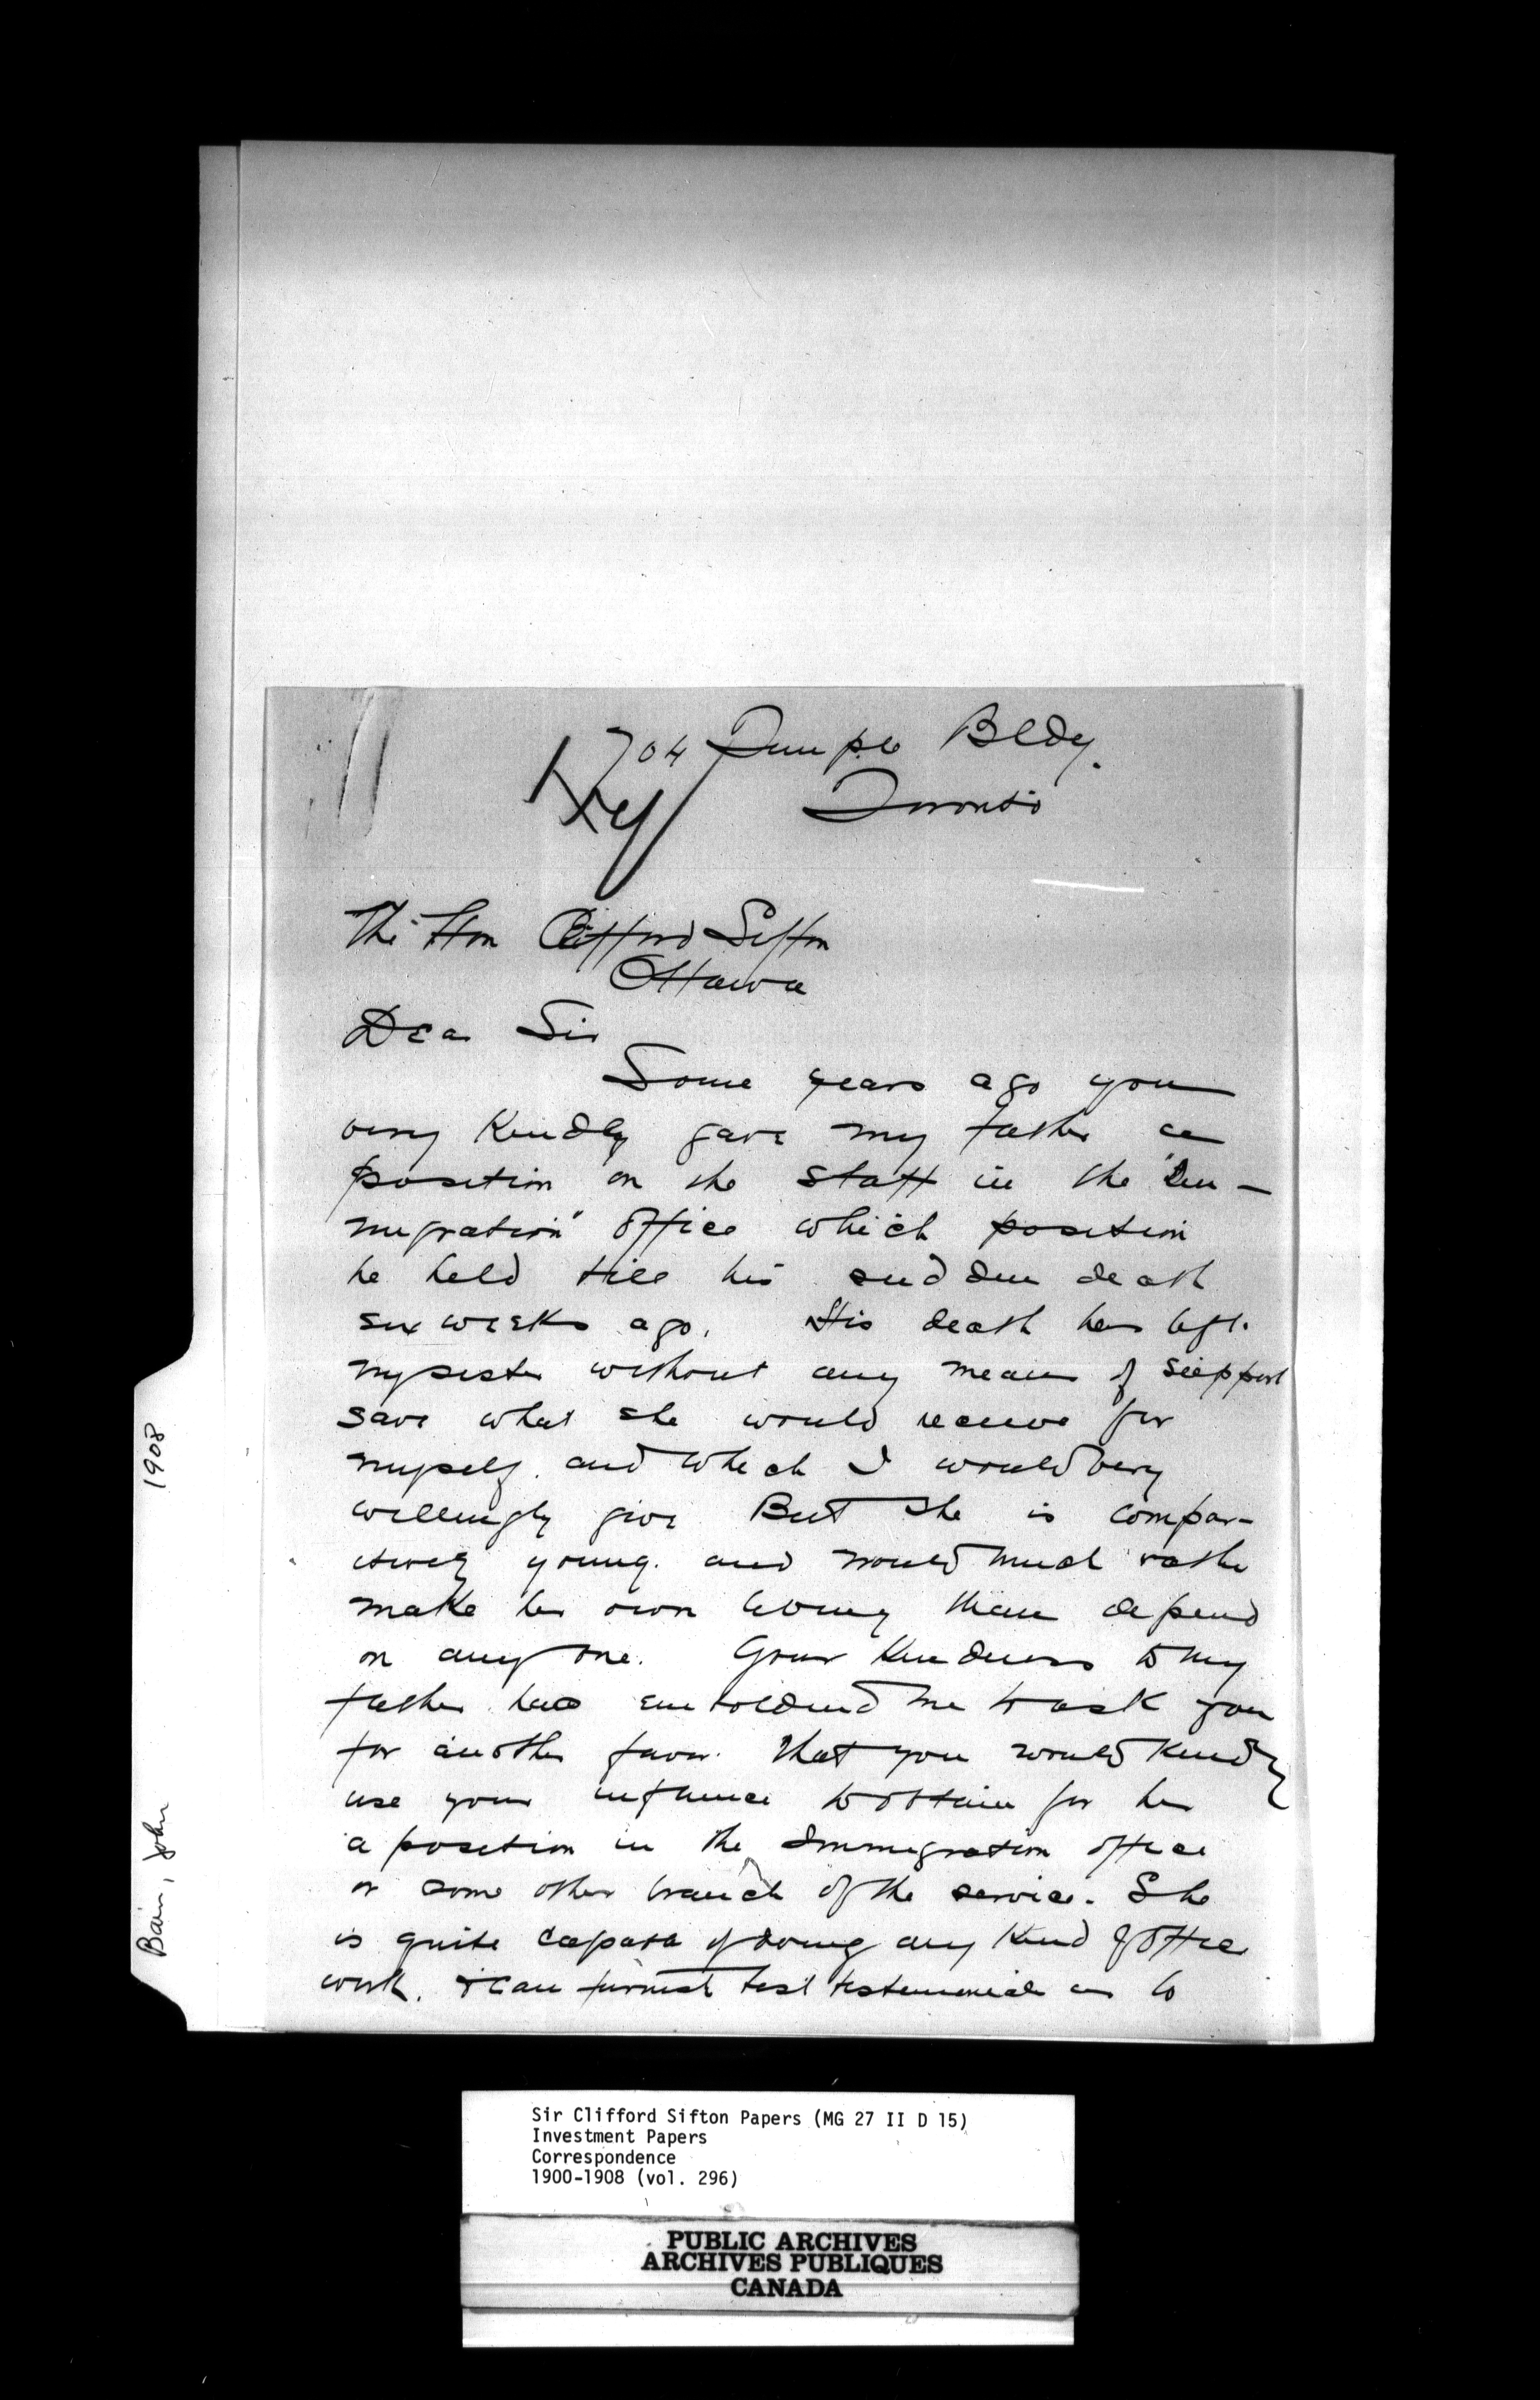 704 Temple Bldg.
Toronto
The Hon Clifford Sifton
Ottawa
Dear Sir
Some years ago you
very kindly gave my father a
position on the staff in the "Im-
migration" office which position
he held till his sudden death
six weeks ago. His death has left
my sister without any means of support
save what she would receive for
myself. and which I would very
willingly give But she is compar-
itively young. and would much rather
make her own living than depend
on any one. Your kindness to my
father has emboldened me to ask you
for another favor. that you would kindly
use your influence to obtain for her
a position in the Immigration office
or some other branch of the service. She
is quite capable of doing any kind of office
work. & can furnish best testimonials as to
1908
Bain, John
Sir Clifford Sifton Papers (MG 27 II D 15)
Investment Papers
Correspondence
1900-1908 (vol. 296)
PUBLIC ARCHIVES
ARCHIVES PUBLIQUES
CANADA